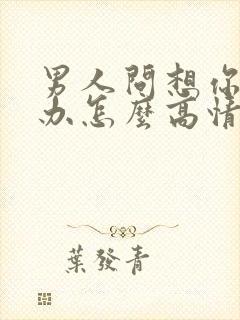 男人問想你
办怎麼高情
葉發青